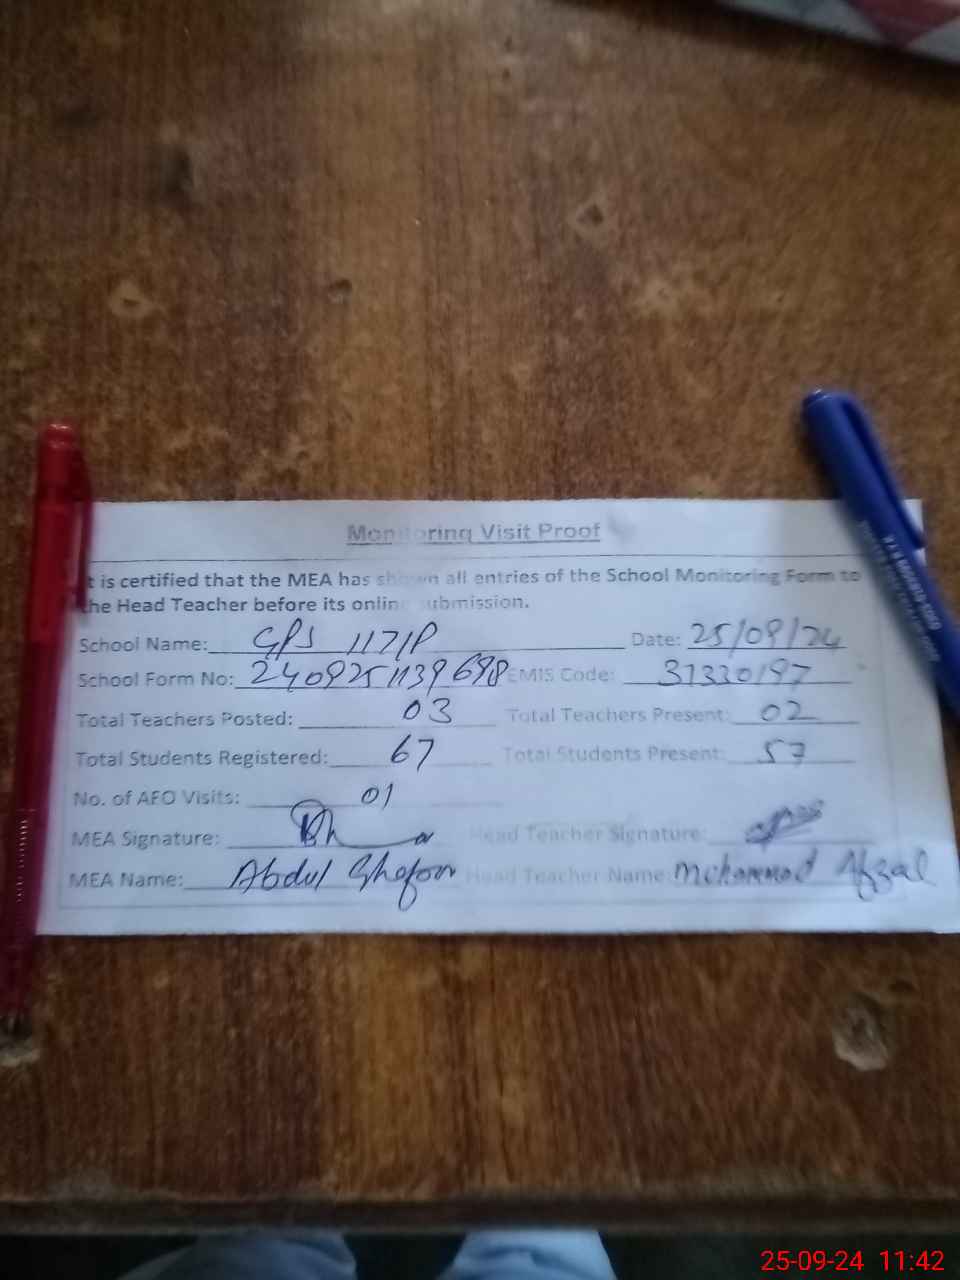 Monitoring Visit Proof
t is certified that the MEA has shown all entries of the School Monitoring Form to
the Head Teacher before its online submission.
School Name: GPS 117/P Date: 25/09/24
School Form No: 240925 1139 698 EMIS Code: 31330197
Total Teachers Posted: 03 Total Teachers Present: 02
Total Students Registered: 67 Total Students Present: 57
No. of AEO Visits: 01
MEA Signature: Head Teacher Signature:
MEA Name: Abdul Ghafoor Head Teacher Name: Mohammad Afzal
25-09-24 11:42